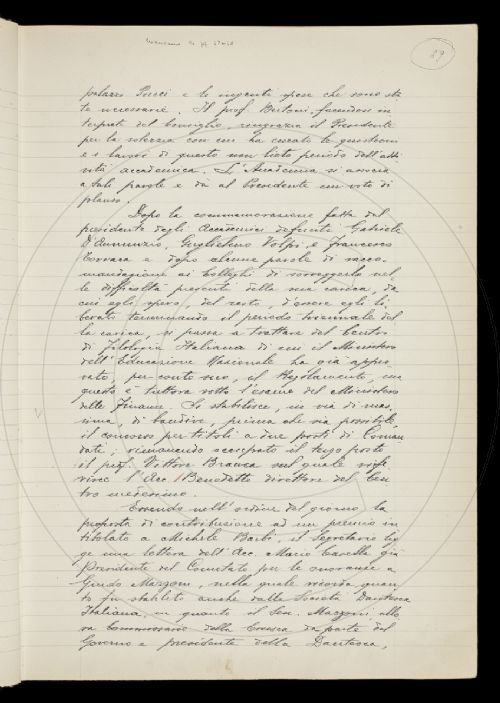 89
palazzo Pucci e le ingenti spese che sono sta
te necessarie. Il prof. Bertoni, facendosi in
terprete del Consiglio, ringrazia il Presidente
per la solerzia con cui ha curato le questioni
e i lavori di questo non lieto periodo dell'atti
vità accademica. L'Accademia si associa
a tali parole e dà al Presidente un voto di
plauso.
Dopo la commemorazione fatta dal
presidente degli Accademici defunti Gabriele
D'Annunzio, Guglielmo Volpi e Francesco
Tornaca e dopo alcune parole di racco
mandazione ai Colleghi di sorreggerlo nel
le difficoltà presenti della sua carica, da
cui egli spera, del resto, d'essere egli li
berato terminando il periodo triennale del
la carica, si passa a trattare del Centro
di Filologia Italiana di cui il Ministero
dell'Educazione Nazionale ha già appro
vato, per conto suo, il Regolamento, ma
questo è tuttora sotto l'esame del Ministero
delle Finanze. Si stabilisce, in via di mas
sima di bandire, prima che sia possibile,
il concorso per titoli a due posti di Coman
dati, rimanendo occupato il terzo posto
il prof. Vittore Branca sul quale
l'Acc. Benedetto direttore del Cen
tro medesimo.
Essendo nell'ordine del giorno la
proposta di contribuzione ad un premio in
titolato a Michele Barbi, il Segretario leg
ge una lettera dell'Acc. Mario Casella già
Presidente del Comitato per le onoranze a
Guido Mazzoni, nella quale ricorda quan
to fu stabilito anche dalla Società Dantesca
Italiana, in quanto il Sen. Mazzoni allo
ra Commissario della Crusca da parte del
Governo e presidente della Dantesca,